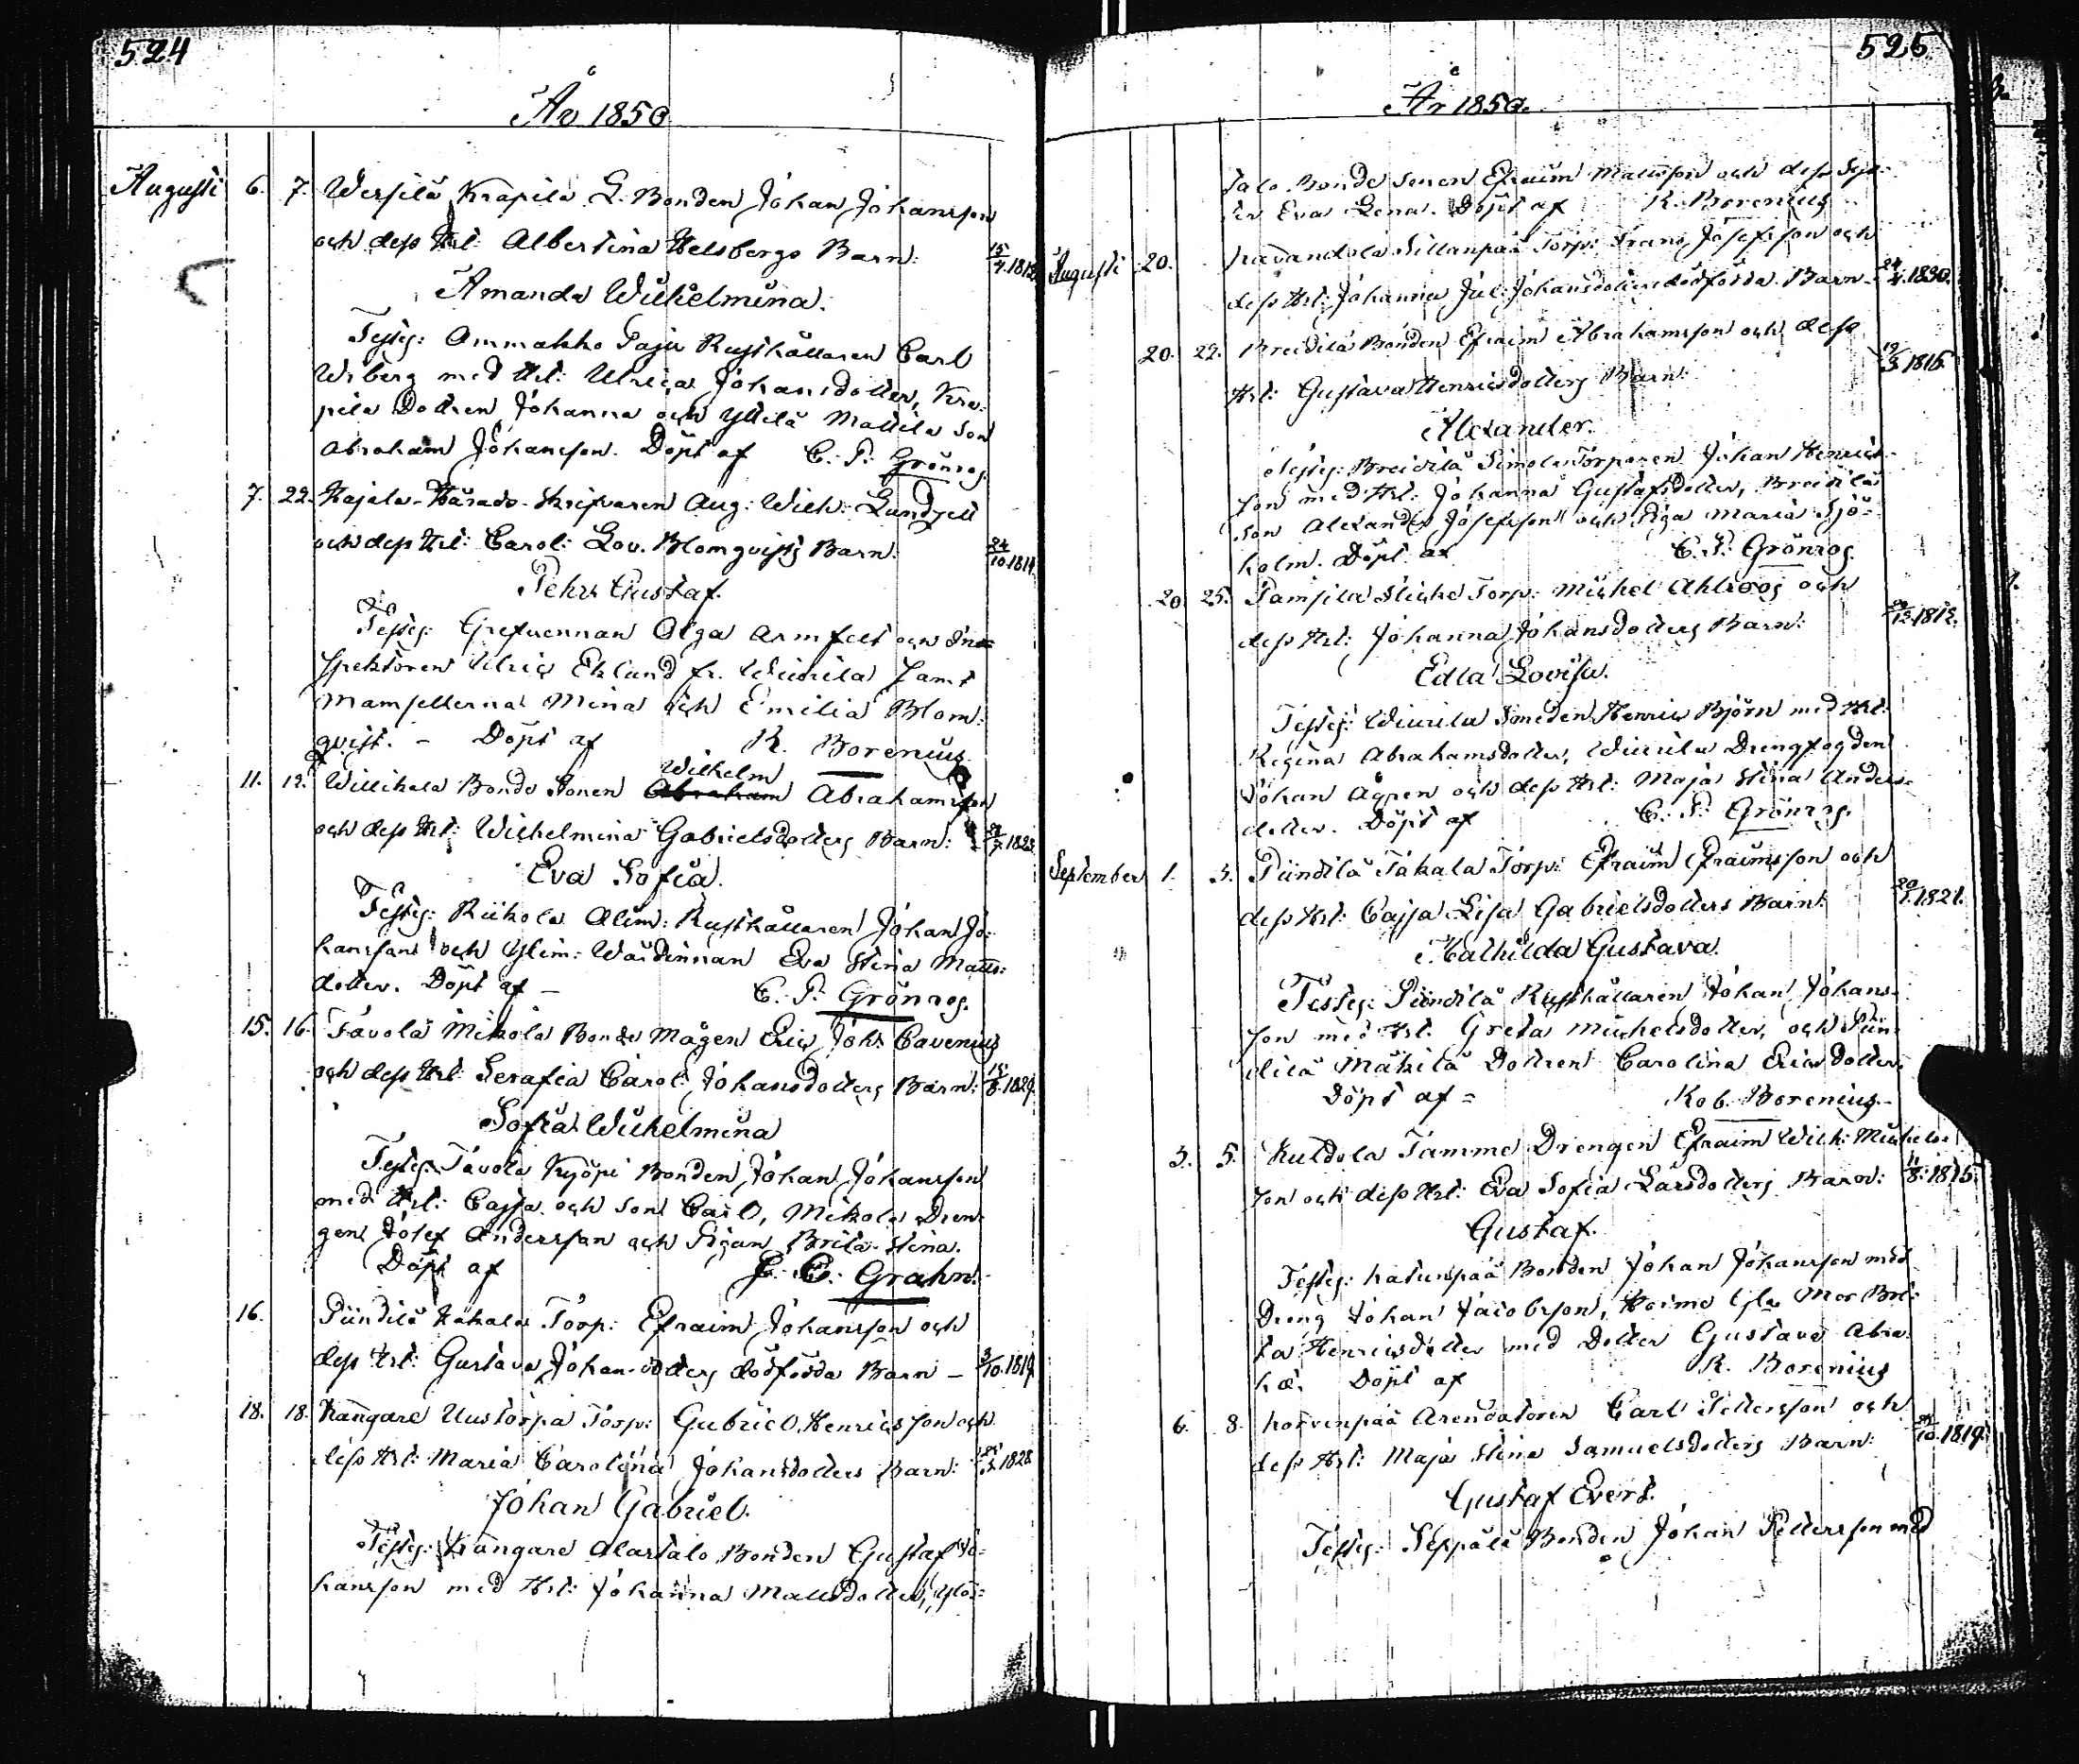 524
År 1850
Augusti 6. 7. Wersilä Krapila L. Bonden Johan Johansson
och dess Hst: Albertina Helsbergs Barn: 15/4.1812
Amanda Wilhelmina.
Testes: Ammakko Paju Rusthållaren Carl
Wiberg med Hst: Ulrica Johansdotter, Kra-
pila Dottren Johanna och Yttilä Mattila Son
Abraham Johansson. Döpt af C. P. Grönros.
7. 22. Kajala Härads-Skrifvaren Aug: Wilh: Lundzell
och dess Hst: Carol: Lov. Blomqvists Barn: 24/10.1814.
Pehr Gustaf.
Testes: Grefvennan Olga Armfelt och In-
spektoren Ulric Eklund fr. Wiurila samt
Mamsellerna Mina och Emilia Blom-
qvist. – Döpt af R. Borenius
11. 12. Willikala Bonde Sonen Abraham Wilhelm Abrahamsson
och dess Hst: Wilhelmina Gabrielsdotters Barn: 1823
Eva Sofia.
Testes: Riikola Alim: Rusthållaren Johan Jo-
hansson och Ylim: Wärdinnan Eva Stina Matts-
dotter. Döpt af – C. P. Grönros.
15. 16. Tavola Mikola Bonde Mågen Eric Joh: Cavenius
och dess Hst: Serafia Carol: Johansdotters Barn: 15/8.1829.
Sofia Wilhelmina
Testes: Tavola Kyöpi Bonden Johan Johansson
med Hst: Cajsa och Son Carl, Mikola Dren-
gen Josef Andersson och Pigan Brita Stina.
Döpt af C. Grahn.
16. Piindilä Kakala Torp: Efraim Johansson och
dess Hst: Gustava Johansdotters dödfödda Barn – 3/10.1819
18. 18. Kangare Uustorpa Torp: Gabriel Henricsson och
dess Hst: Maria Carolina Johansdotters Barn: 1828
Johan Gabriel.
Testes: Kangare Alastalo Bonden Gustaf Jo-
hansson med Hst: Johanna Mattsdotter, Ylös-
525
År 1850.
talo Bonde Sonen Efraim Mattsson och dess Sys-
ter Eva Lena. Döpt af R. Borenius
Augusti 20. Kavandola Sillanpää Torp: Frans Josefsson och
dess Hst: Johanna Jul: Johansdotters dödfödda Barn – 24/4.1830.
20. 22. Breidilä Bonden Efraim Abrahamsson och dess
Hst: Gustava Henricsdotters Barn: 19/3.1816.
Alexander.
Testes: Breidilä Simola Torparen Johan Henrics-
son med Hst: Johanna Gustafsdotter, Breidilä
Son Alexander Josefsson och Piga Maria Sjö-
holm. Döpt af C. P. Grönros.
20. 25. Pamsila Torp: Michel Ahlroos och
dess Hst: Johanna Johansdotters Barn: 12.1812.
Edla Lovisa.
Testes: Wiurila Smeden Henric Björn med Hst:
Regina Abrahamsdotter, Wiurila Drengfogden
Johan Ågren och dess Hst: Maja Stina Anders-
dotter. Döpt af C. P. Grönros.
September 1. 3. Piindilä Takala Torp: Efraim Efraimsson och
dess Hst: Cajsa Lisa Gabrielsdotters Barn: 1821.
Mathilda Gustava.
Testes: Piindilä Rusthållaren Johan Johans-
son med Hst: Greta Michelsdotter, och Piin-
dilä Mäkilä Dottren Carolina Ericsdotter.
Döpt af – Rob. Borenius.
3. 5. Kuldola Tamme Drengen Efraim Wilh: Michels-
son och dess Hst: Eva Sofia Larsdotters Barn: 11/8.1815.
Gustaf.
Testes: Katunpää Bonden Johan Johansson med
Dreng Johan Jacobsson, Mor Bri-
ta Henricsdotter med Dotter Gustava Abra-
h.d. Döpt af R. Borenius
6. 8. Korvenpää Arendatoren Carl Pettersson och
dess Hst: Maja Stina Samuelsdotters Barn: 24/10.1819.
Gustaf Evert.
Testes: Seppälä Bonden Johan Pettersson med